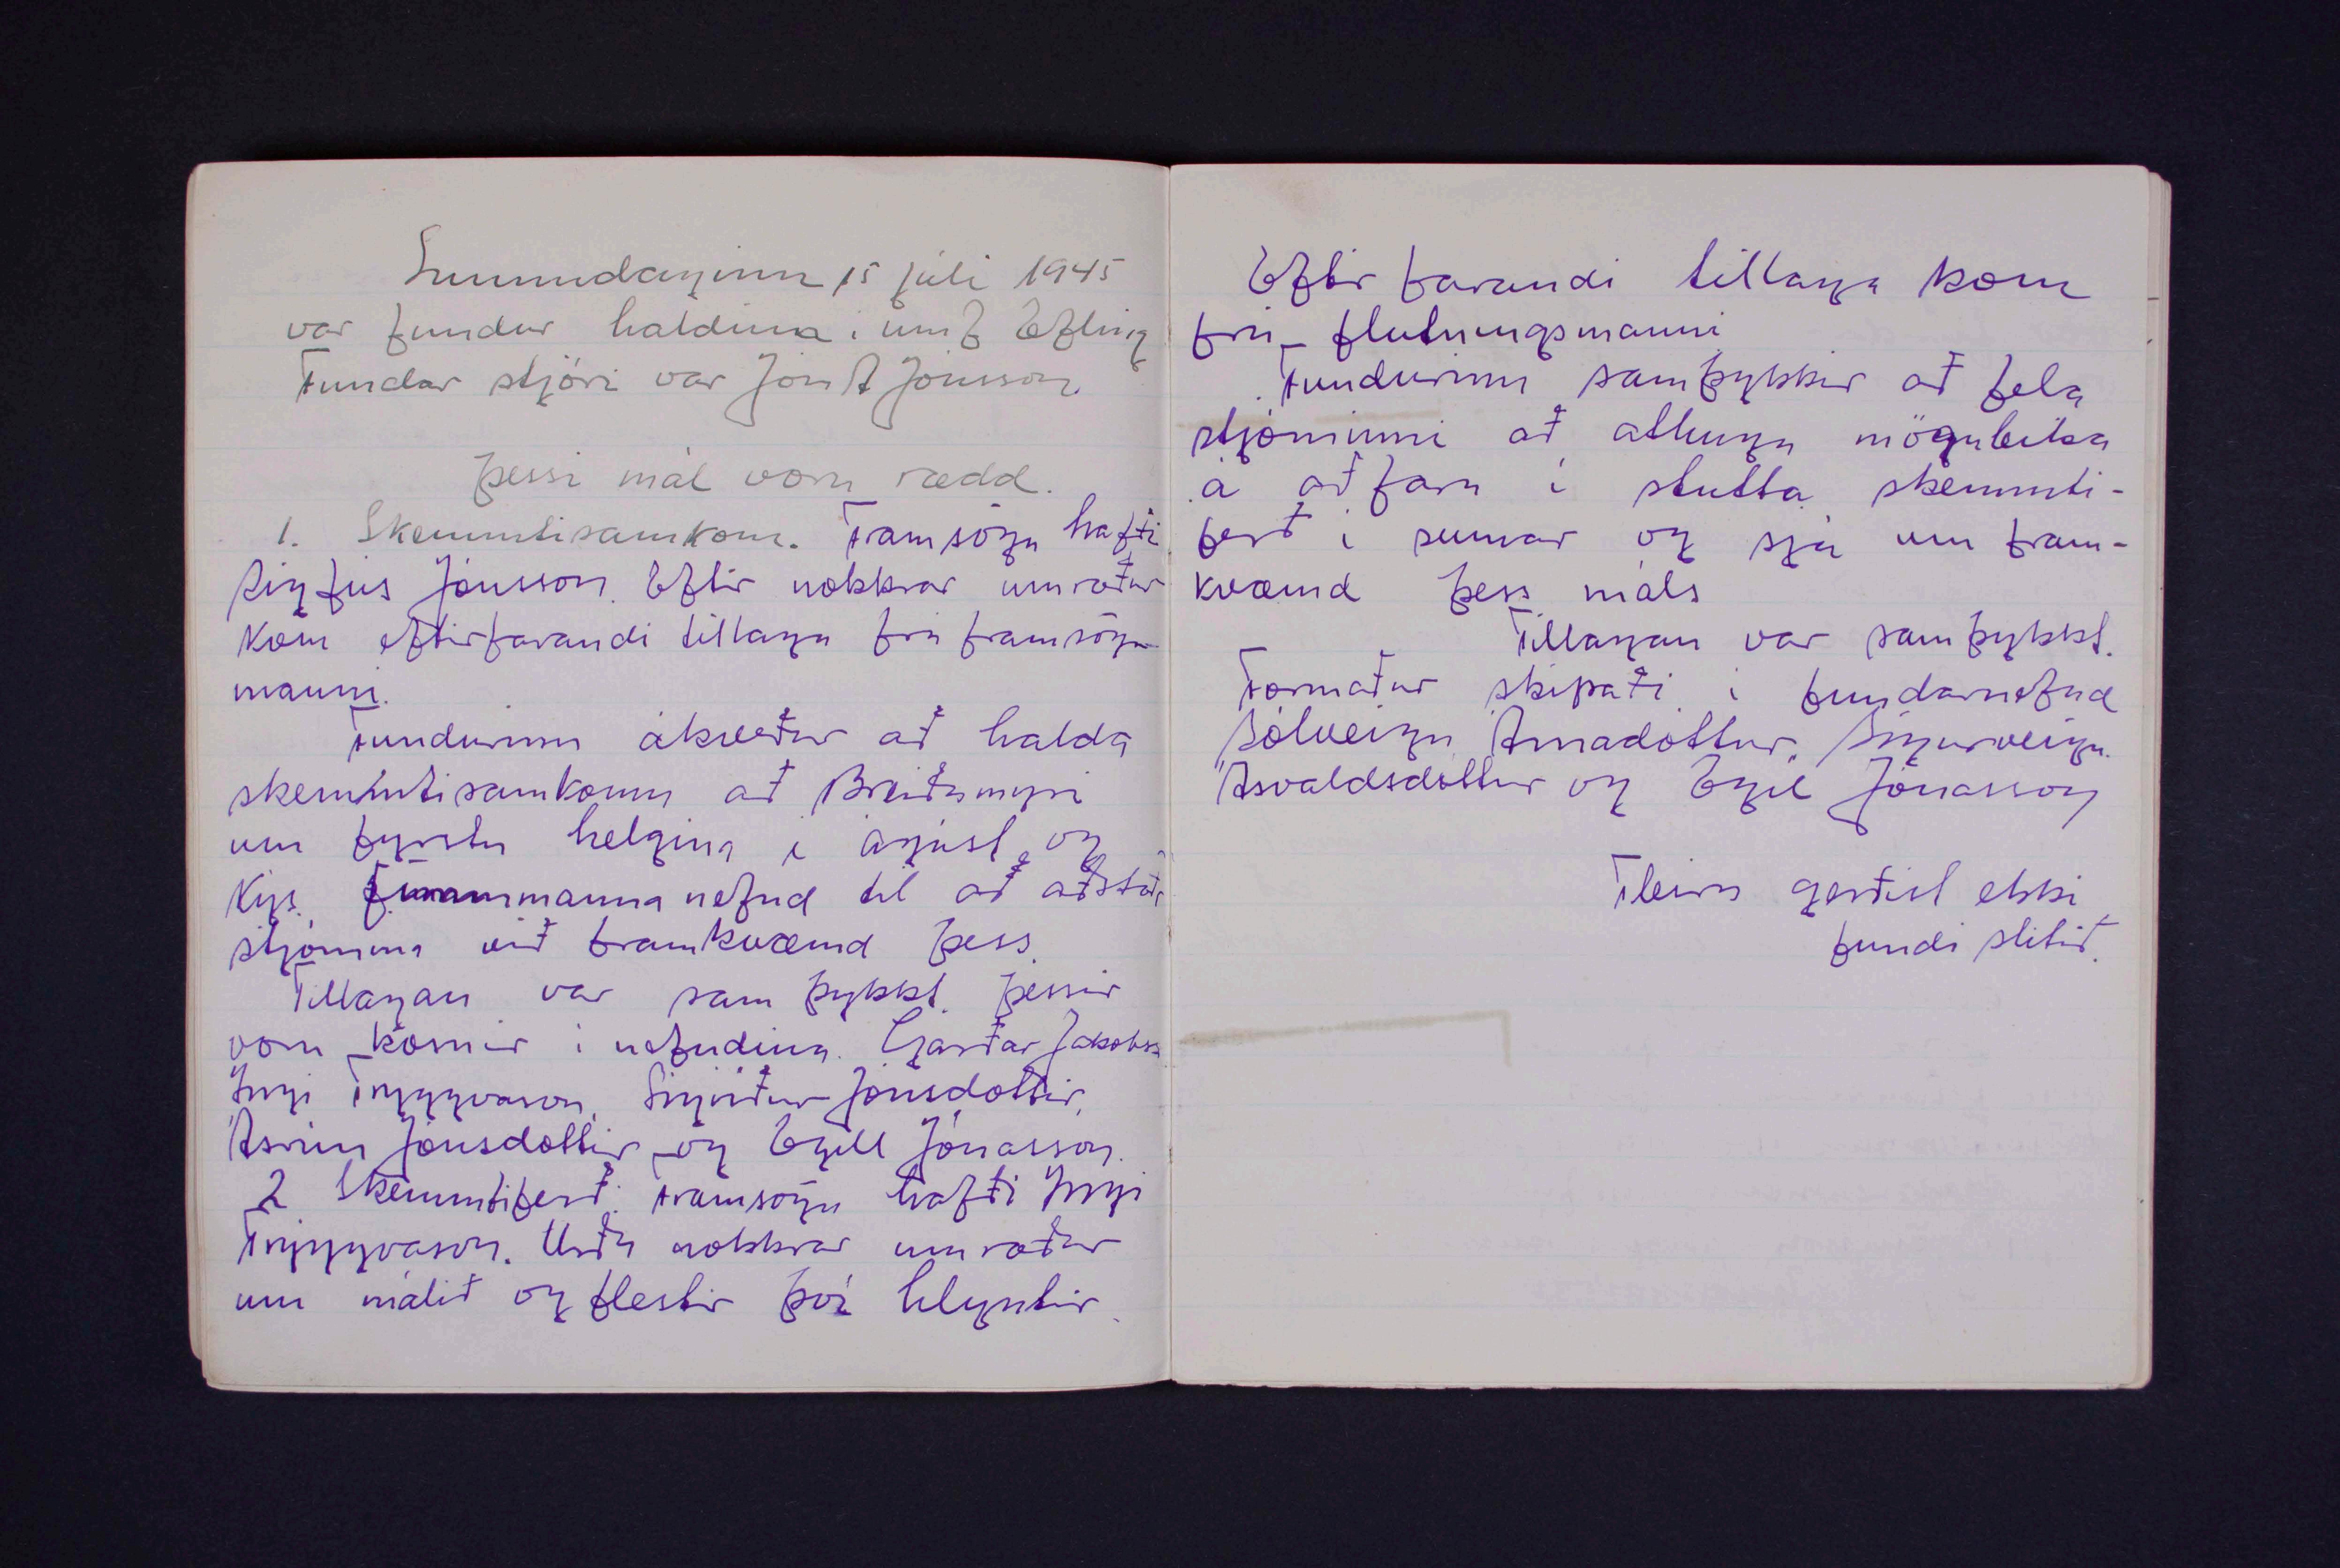 Sunnudaginn 15 júli 1945
var fundur haldinn i umf Efling
Fundar stjóri var Jón A Jónsson.
Þessi mál voru rædd.
1. Skemmtisamkom. Framsögu hafði
Sigfús Jónsson. Eftir nokkrar umræður
kom eftirfarandi tillaga frá framsögu
manni.
Fundurinn ákveður að halda
skemmtisamkomu að Breiðumýri
um fyrstu helgina i ágúst og
kýs manna nefnd til að aðstoða
stjórnina við framkvæmd þess.
Tillagan var sam þykkt. Þessir
voru kosnir i nefndina. Garðar Jakobss
Ingi Tryggvason, Sigríður Jónsdóttir,
Ásrún Jónsdóttir og Egill Jónasson.
2 Skemmtiferð. Framsögu hafði Ingi
Tryggvason. Urðu nokkrar umræður
um málið og flestir því hlyntir.
Eftir farandi tillaga kom
frá flutningsmanni
Fundurinn samþykkir að fela
stjórninni að athuga möguleika
á að fara i stutta skemmti-
ferð i sumar og sjá um fram-
kvæmd þess máls
Tillagan var samþykkt.
Formaður skipaði i fundarnefnd
Sólveigu Arnadóttur, Sigurveigu
Ásvaldsdóttur og Egil Jónasson
Fleira gerðist ekki
fundi slitið.